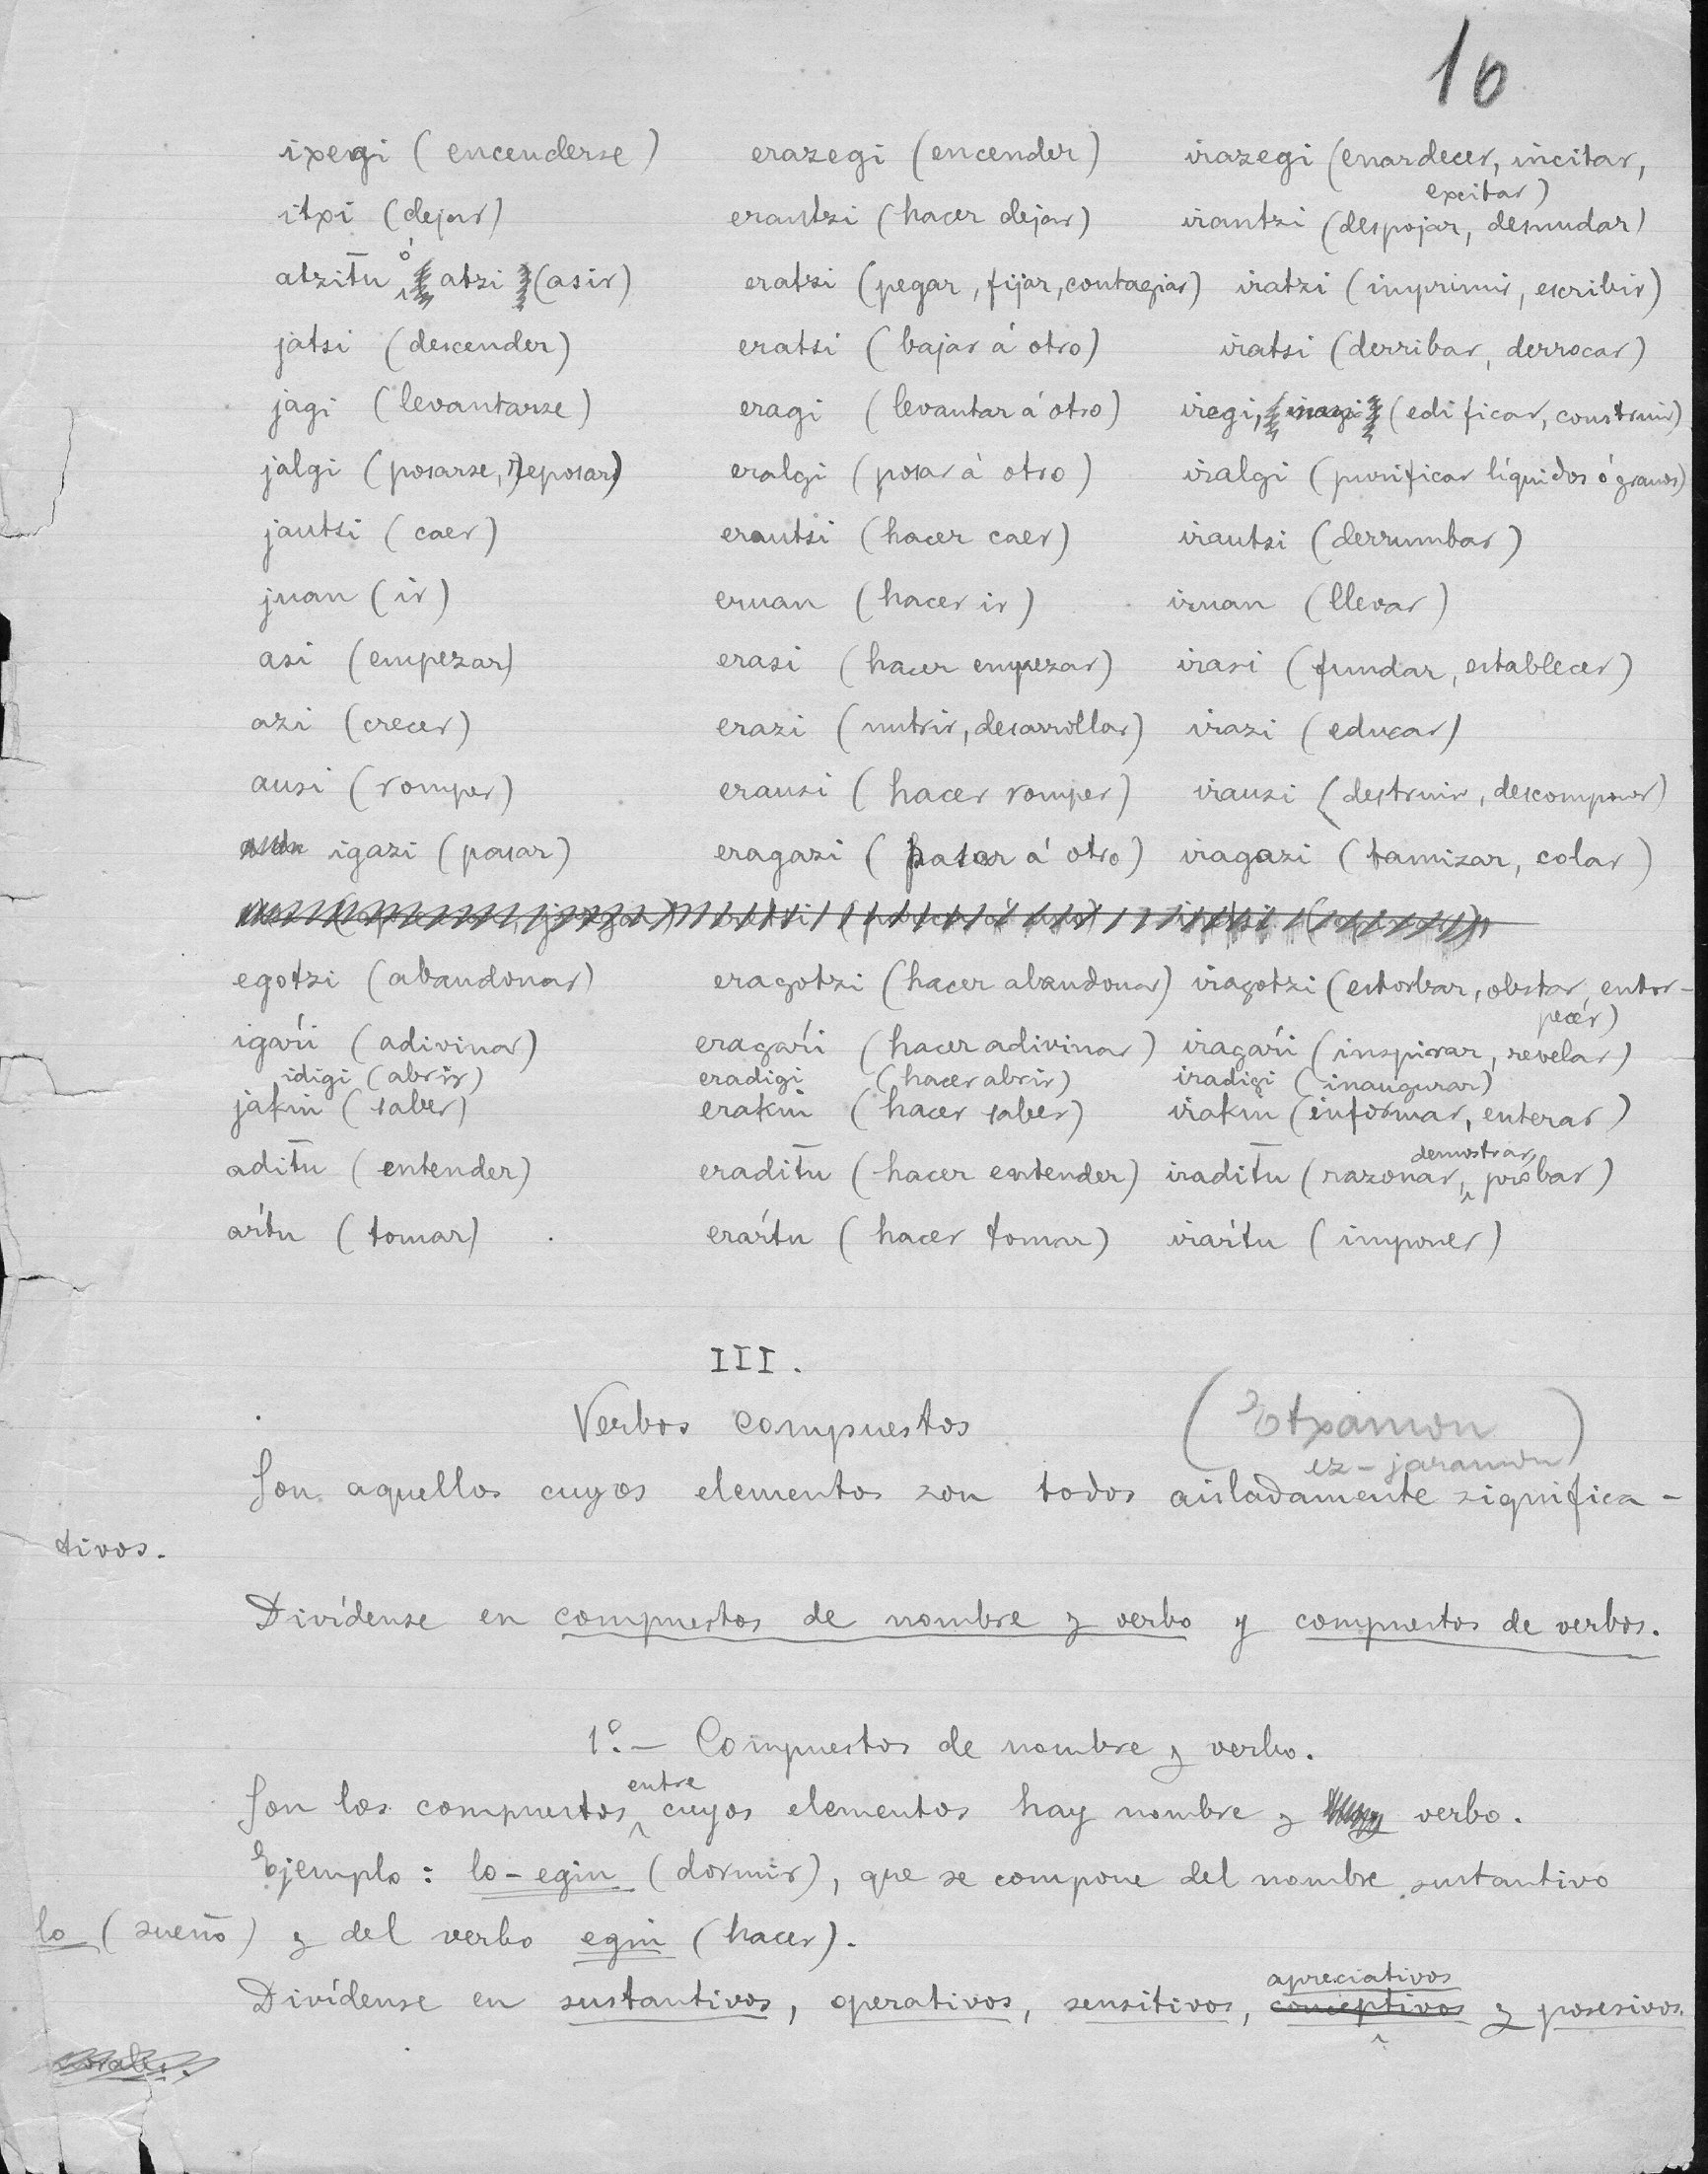 16
ixegi (encenderse) erazegi (encender) irazegi (enardecer, incitar,
excitar)
itxi (dejar) erautzi (hacer dejar) irantzi (despojar, desnudar)
atzitu̅ ó atzi (asir) eratzi (pegar, fijar, contagiar) iratzi (imprimir, escribir)
jatsi (descender) eratsi (bajar á otro) iratsi (derribar, derrocar)
jagi (levantarse) eragi (levantar á otro) iregi, (edificar, construir)
jalgi (posarse, reposar) eralgi (posar á otro) iralgi (purificar líquidos ó granos)
jautsi (caer) erautsi (hacer caer) irautsi (derrumbar)
juan (ir) eruan (hacer ir) iruan (llevar)
asi (empezar) erasi (hacer empezar) irasi (fundar, establecer)
azi (crecer) erazi (nutrir, desarrollar) irazi (educar)
ausi (romper) erausi (hacer romper) irausi (destruir, descomponer)
igazi (pasar) eragazi (pasar á otro) iragazi (tamizar, colar)
egotzi (abandonar) eragotzi (hacer abandonar) iragotzi (estorbar, obstar, entor-
pecer)
igaŕi (adivinar) eragaŕi (hacer adivinar) iragaŕi (inspirar, revelar)
idigi (abrir) eradigi (hacer abrir) iradigi (inaugurar)
jakin (saber) erakin (hacer saber) irakin (informar, enterar)
adit̅u (entender) eradit̅u (hacer entender) iradit̅u (razonar, demostrar, probar)
aŕtu (tomar) eraŕtu (hacer tomar) iraŕtu (imponer)
III.
Verbos compuestos (Etxamon
ez-jaramon)
Son aquellos cuyos elementos son todos aisladamente significa-
tivos.
Divídense en compuestos de nombre y verbo y compuestos de verbos.
1º.— Compuestos de nombre y verbo.
Son los compuestos entre cuyos elementos hay nombre y verbo.
Ejemplo: lo-egin (dormir), que se compone del nombre sustantivo
lo (sueño) y del verbo egin (hacer).
Divídense en sustantivos, operativos, sensitivos, conceptivos apreciativos y posesivos.